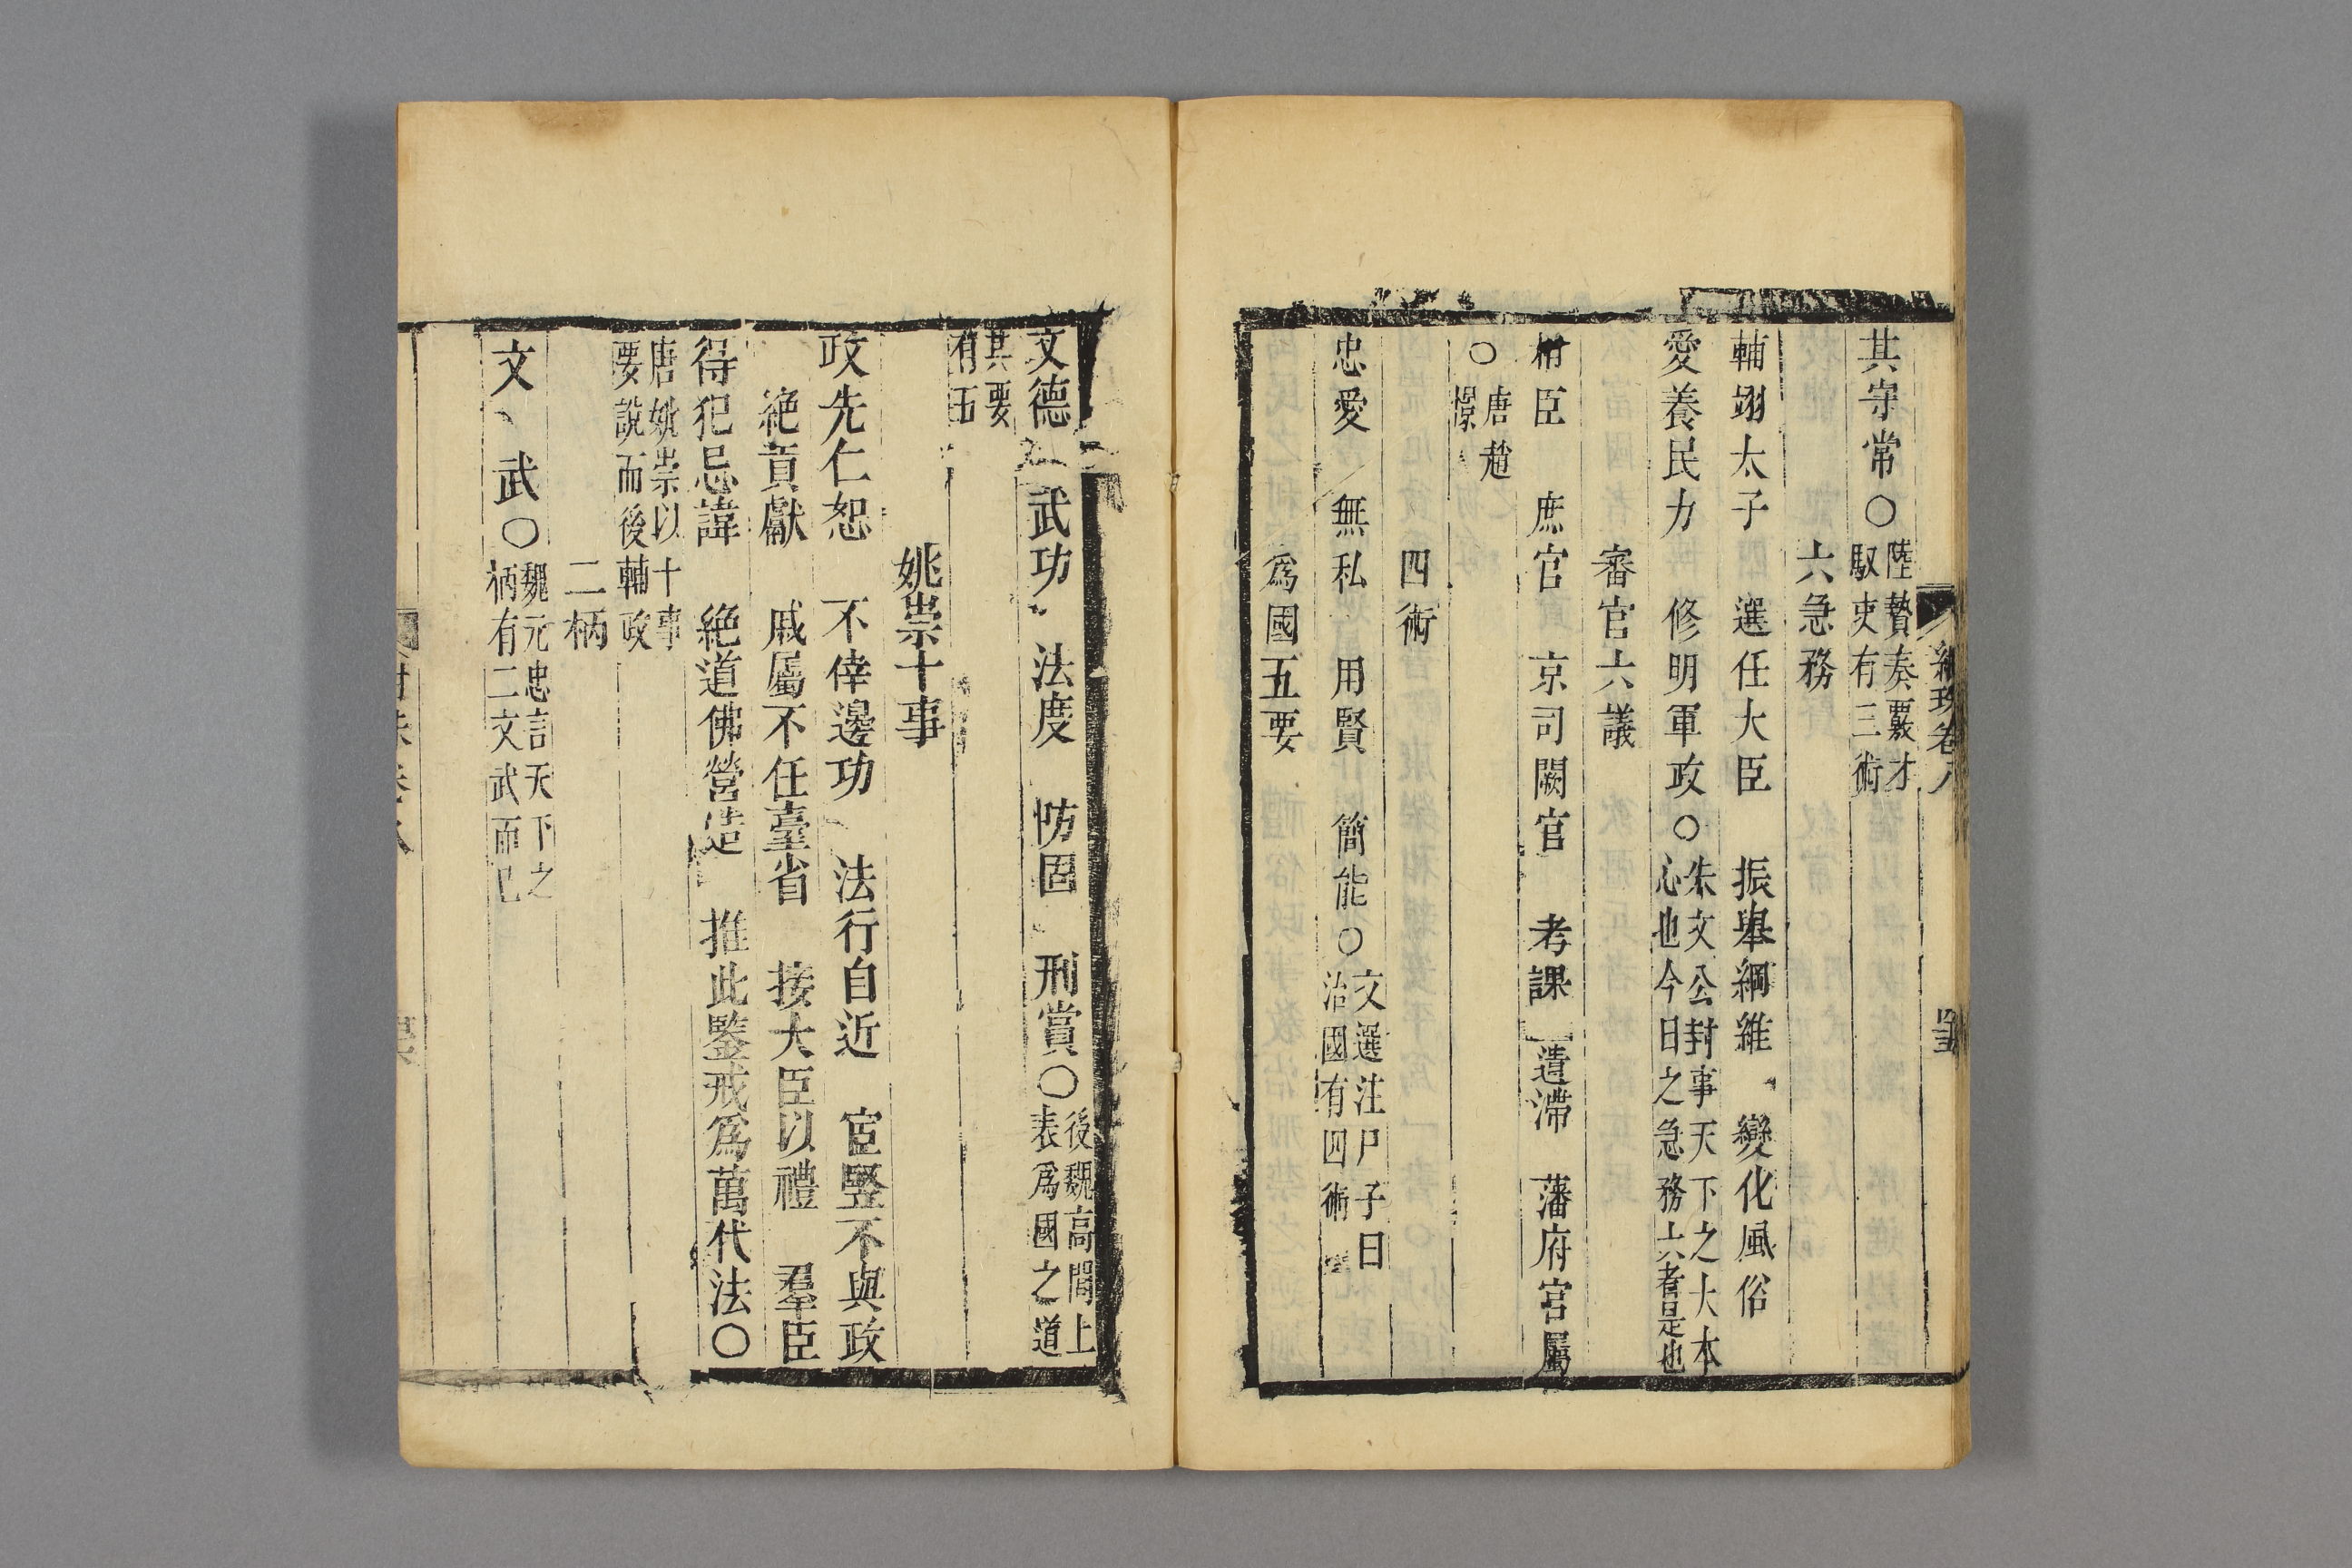 其守常○陸贄奏覈才馭吏有三術
六急務
輔翊太子　選任大臣　振舉綱維　變化風俗
愛養民力　修明軍政○朱文公封事天下之大本心也今日之急務六者是也
審官六議
相臣　庶官　京司闕官　考課　遺滯　藩府官屬
○唐趙憬
四術
忠愛　無私　用賢　簡能○文選注尸子曰治國有四術
為國五要
文德　武功　法度　防固　刑賞○後魏高閭上表為國之道其要有五
姚崇十事
政先仁恕　不倖邊功　法行自近　宦豎不與政
絶貢獻　戚屬不任臺省　接大臣以禮　羣臣
得犯忌諱　絶道佛營造　推此鑒戒為萬代法○
唐姚崇以十事要說而後輔政
二柄
文　武○魏元忠言天下之柄有二文武而已